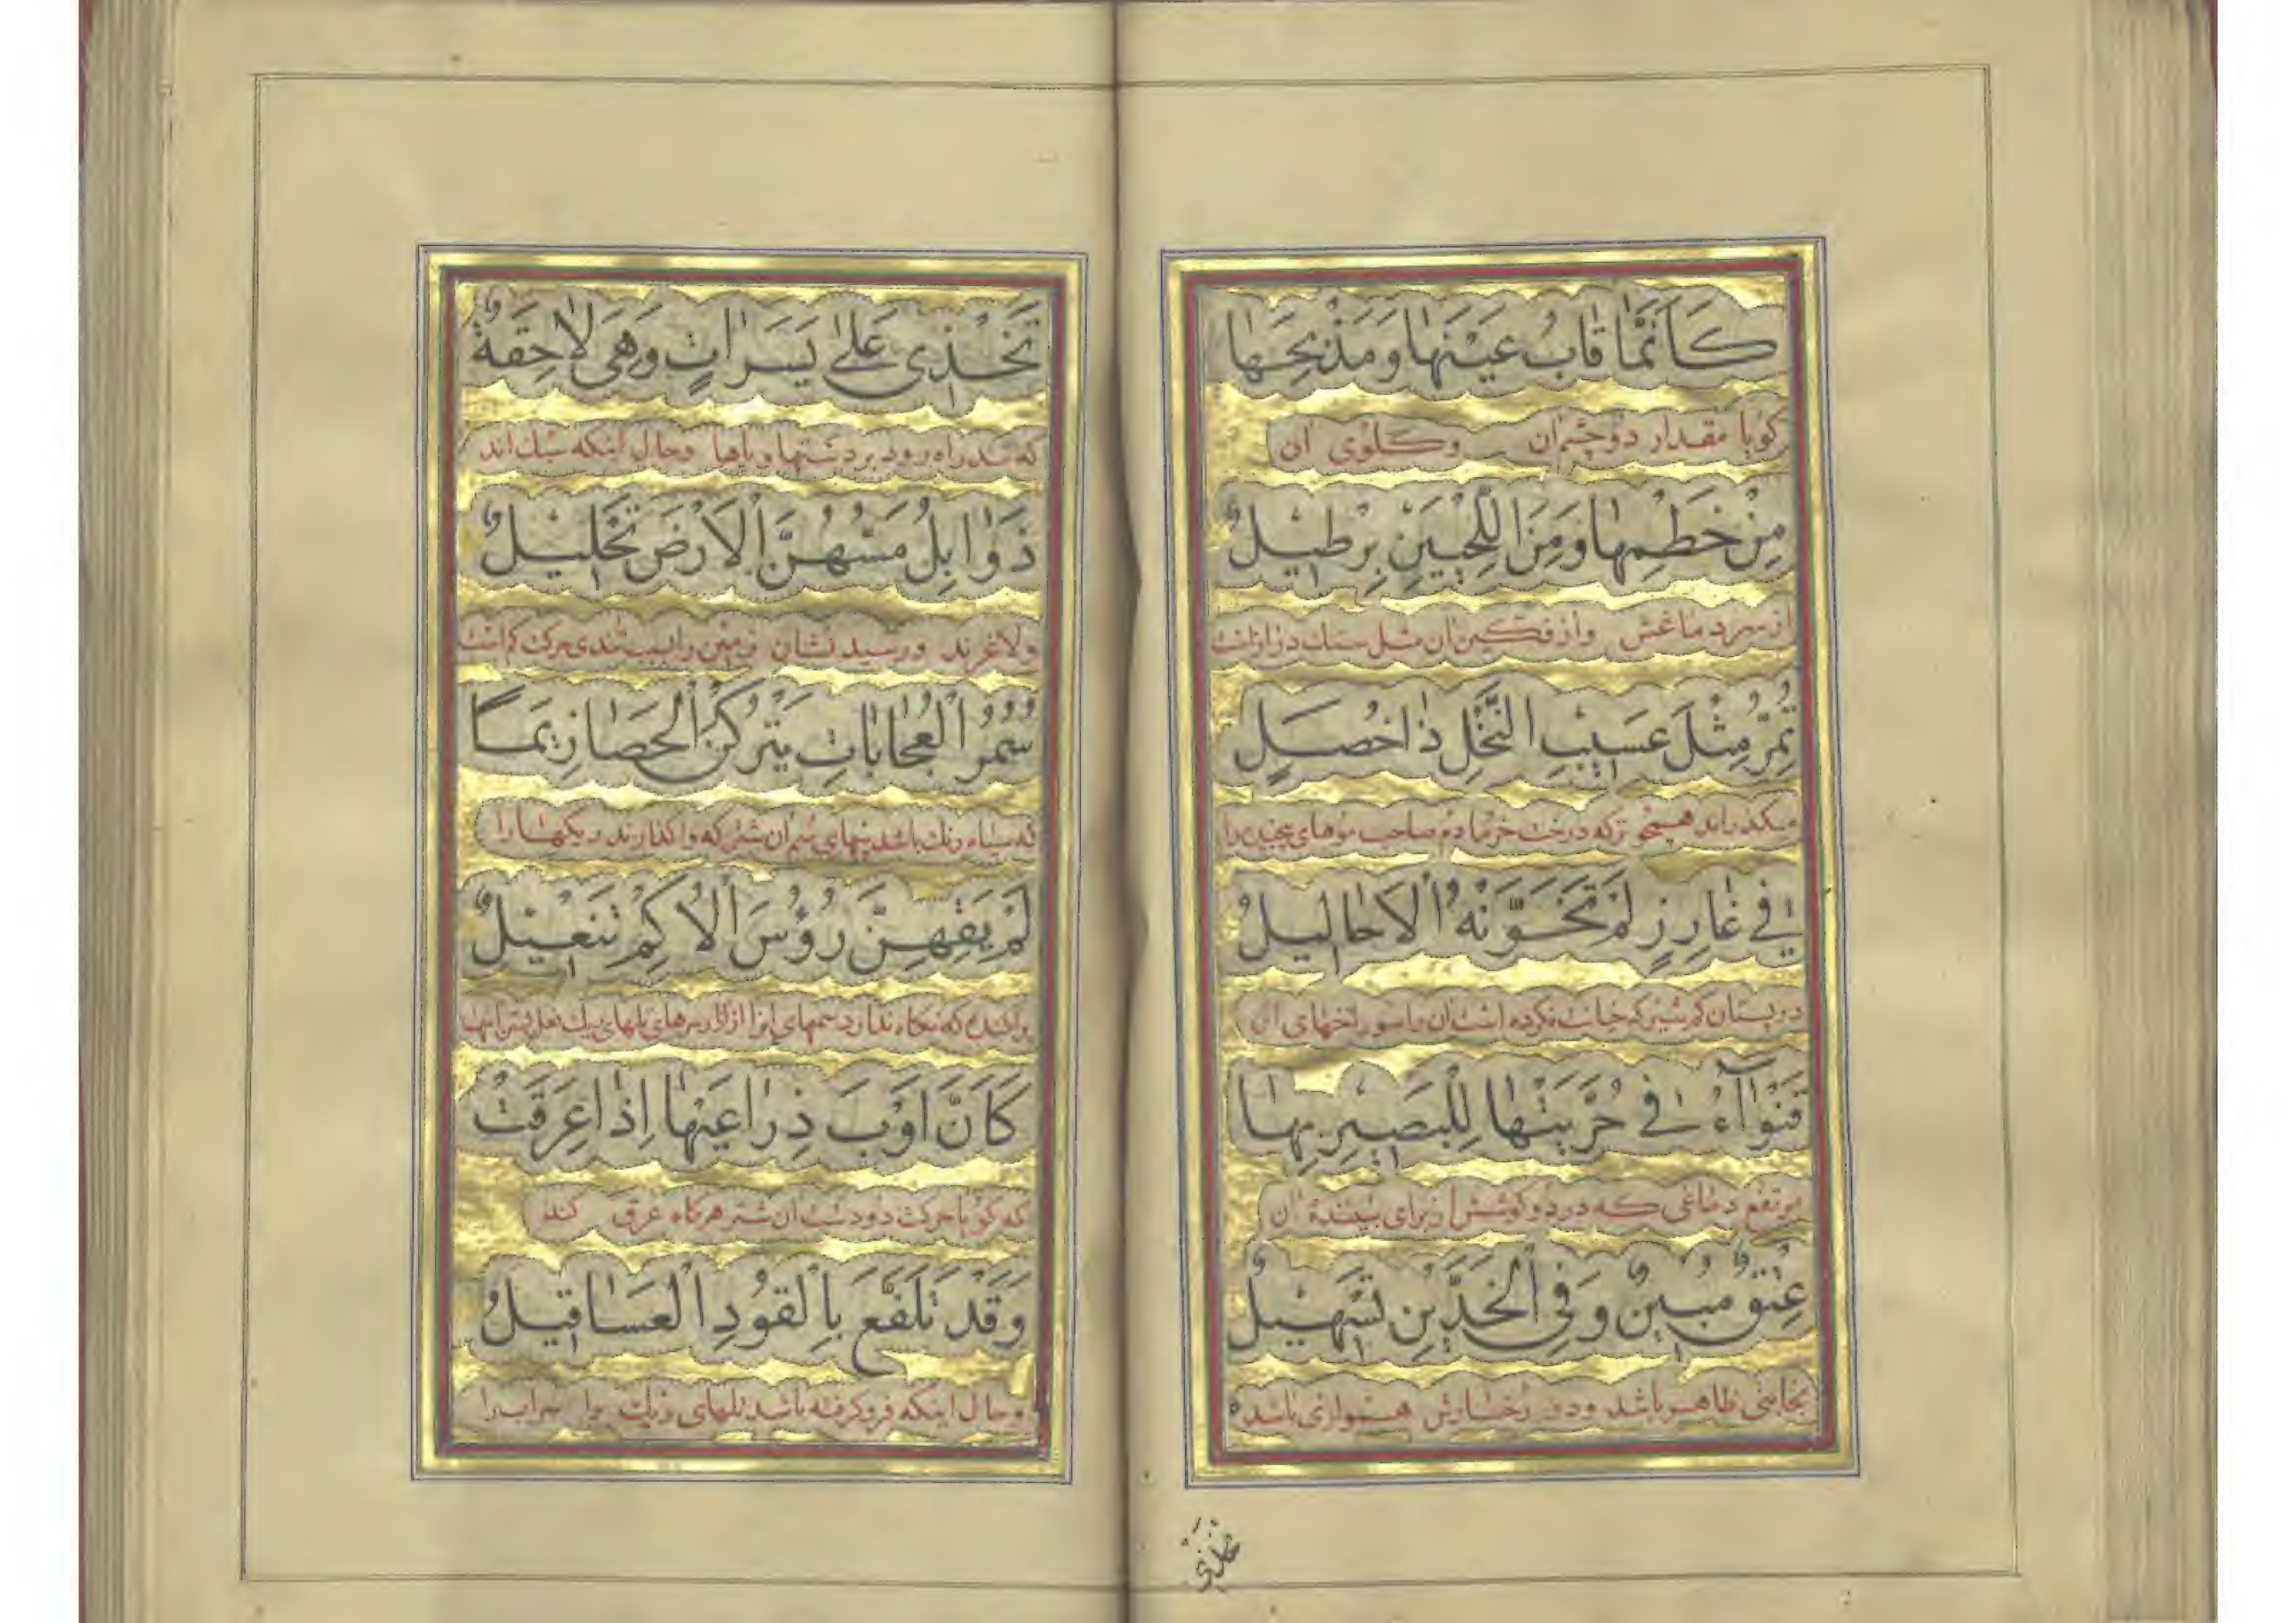 كَاَنَّمٰا قٰابُ عَيْنَهٰا وَ مَذْبَحِهٰا
گویا مقدار دو چشمان وگلوی آن
مِنْ خَطْمِهٰا وَ مِنَ اللَّحْيَيْنِ بِرْطيٖلٌ
از سر دماغش و از فکین آن مثل سنك دراز است
تُمِرُّ مِثْلَ عَسيٖبِ النَّخْلِ ذٰا خُصَلٍ
میکذراند همچو ترکه درخت خرما دم صاحب موهای پیچیده را
فيٖ غٰارِزٍ لَمْ تَخَوَّنْهُ الْاَحٰاليٖلُ
در پستان کم شیر که خیانت نکرده است آن را سوراخهای آن
قَنْوٰآءُ فيٖ حُرَّيَتْهٰا لِلْبَصيٖرِ بِهٰا
مرتفع دماغی که در دو کوشش از برای بیننده آن
عِتْقٌ مُبيٖنٌ وَ فِي الْخَدَّيْنِ تَسْهيٖلٌ
نجابتی ظاهر باشد ودر رخسارش همواری باشد
تخذی
تَخْذيٖ عَلىٰ يَسَرٰاتٍ وَهْيَ لٰاحِقَةٌ
که تند راه رود بر دستها و پاها وحال اینکه سبك اند
ذَوٰابِلٌ مَسُّهُنَّ الْاَرْضَ تَحْليٖلٌ
ولاغرند و رسیدنشان زمین را بسبب تندی حرکت کم است
سُمْرُ الْعُجٰايٰاتِ يَتْرُكْنَ الْحَصٰا زِيَمًا
که سیاه رنك باشد پیهای سم آن شتر که وا گذارند ریکها را
لَمْ يَقِهِنَّ رُؤُسَ الْاُكْمِ تَنْعيٖلٌ
پراکنده که نگاه ندارد سمهای آنرا از آزار سرهای تلهای ریك نعل بستن آنها
كَاَنَّ اَوْبَ ذِرٰاعَيْهٰا اِذٰا عَرِقَتْ
که گویا حرکت دو دست آن شتر هرگاه عرق کند
وَ قَدْ تَلَفَّعَ بِالْقُودِ الْعَسٰاقيٖلُ
و حال اینکه فرو گرفته باشد تلهای ریك را سراب را